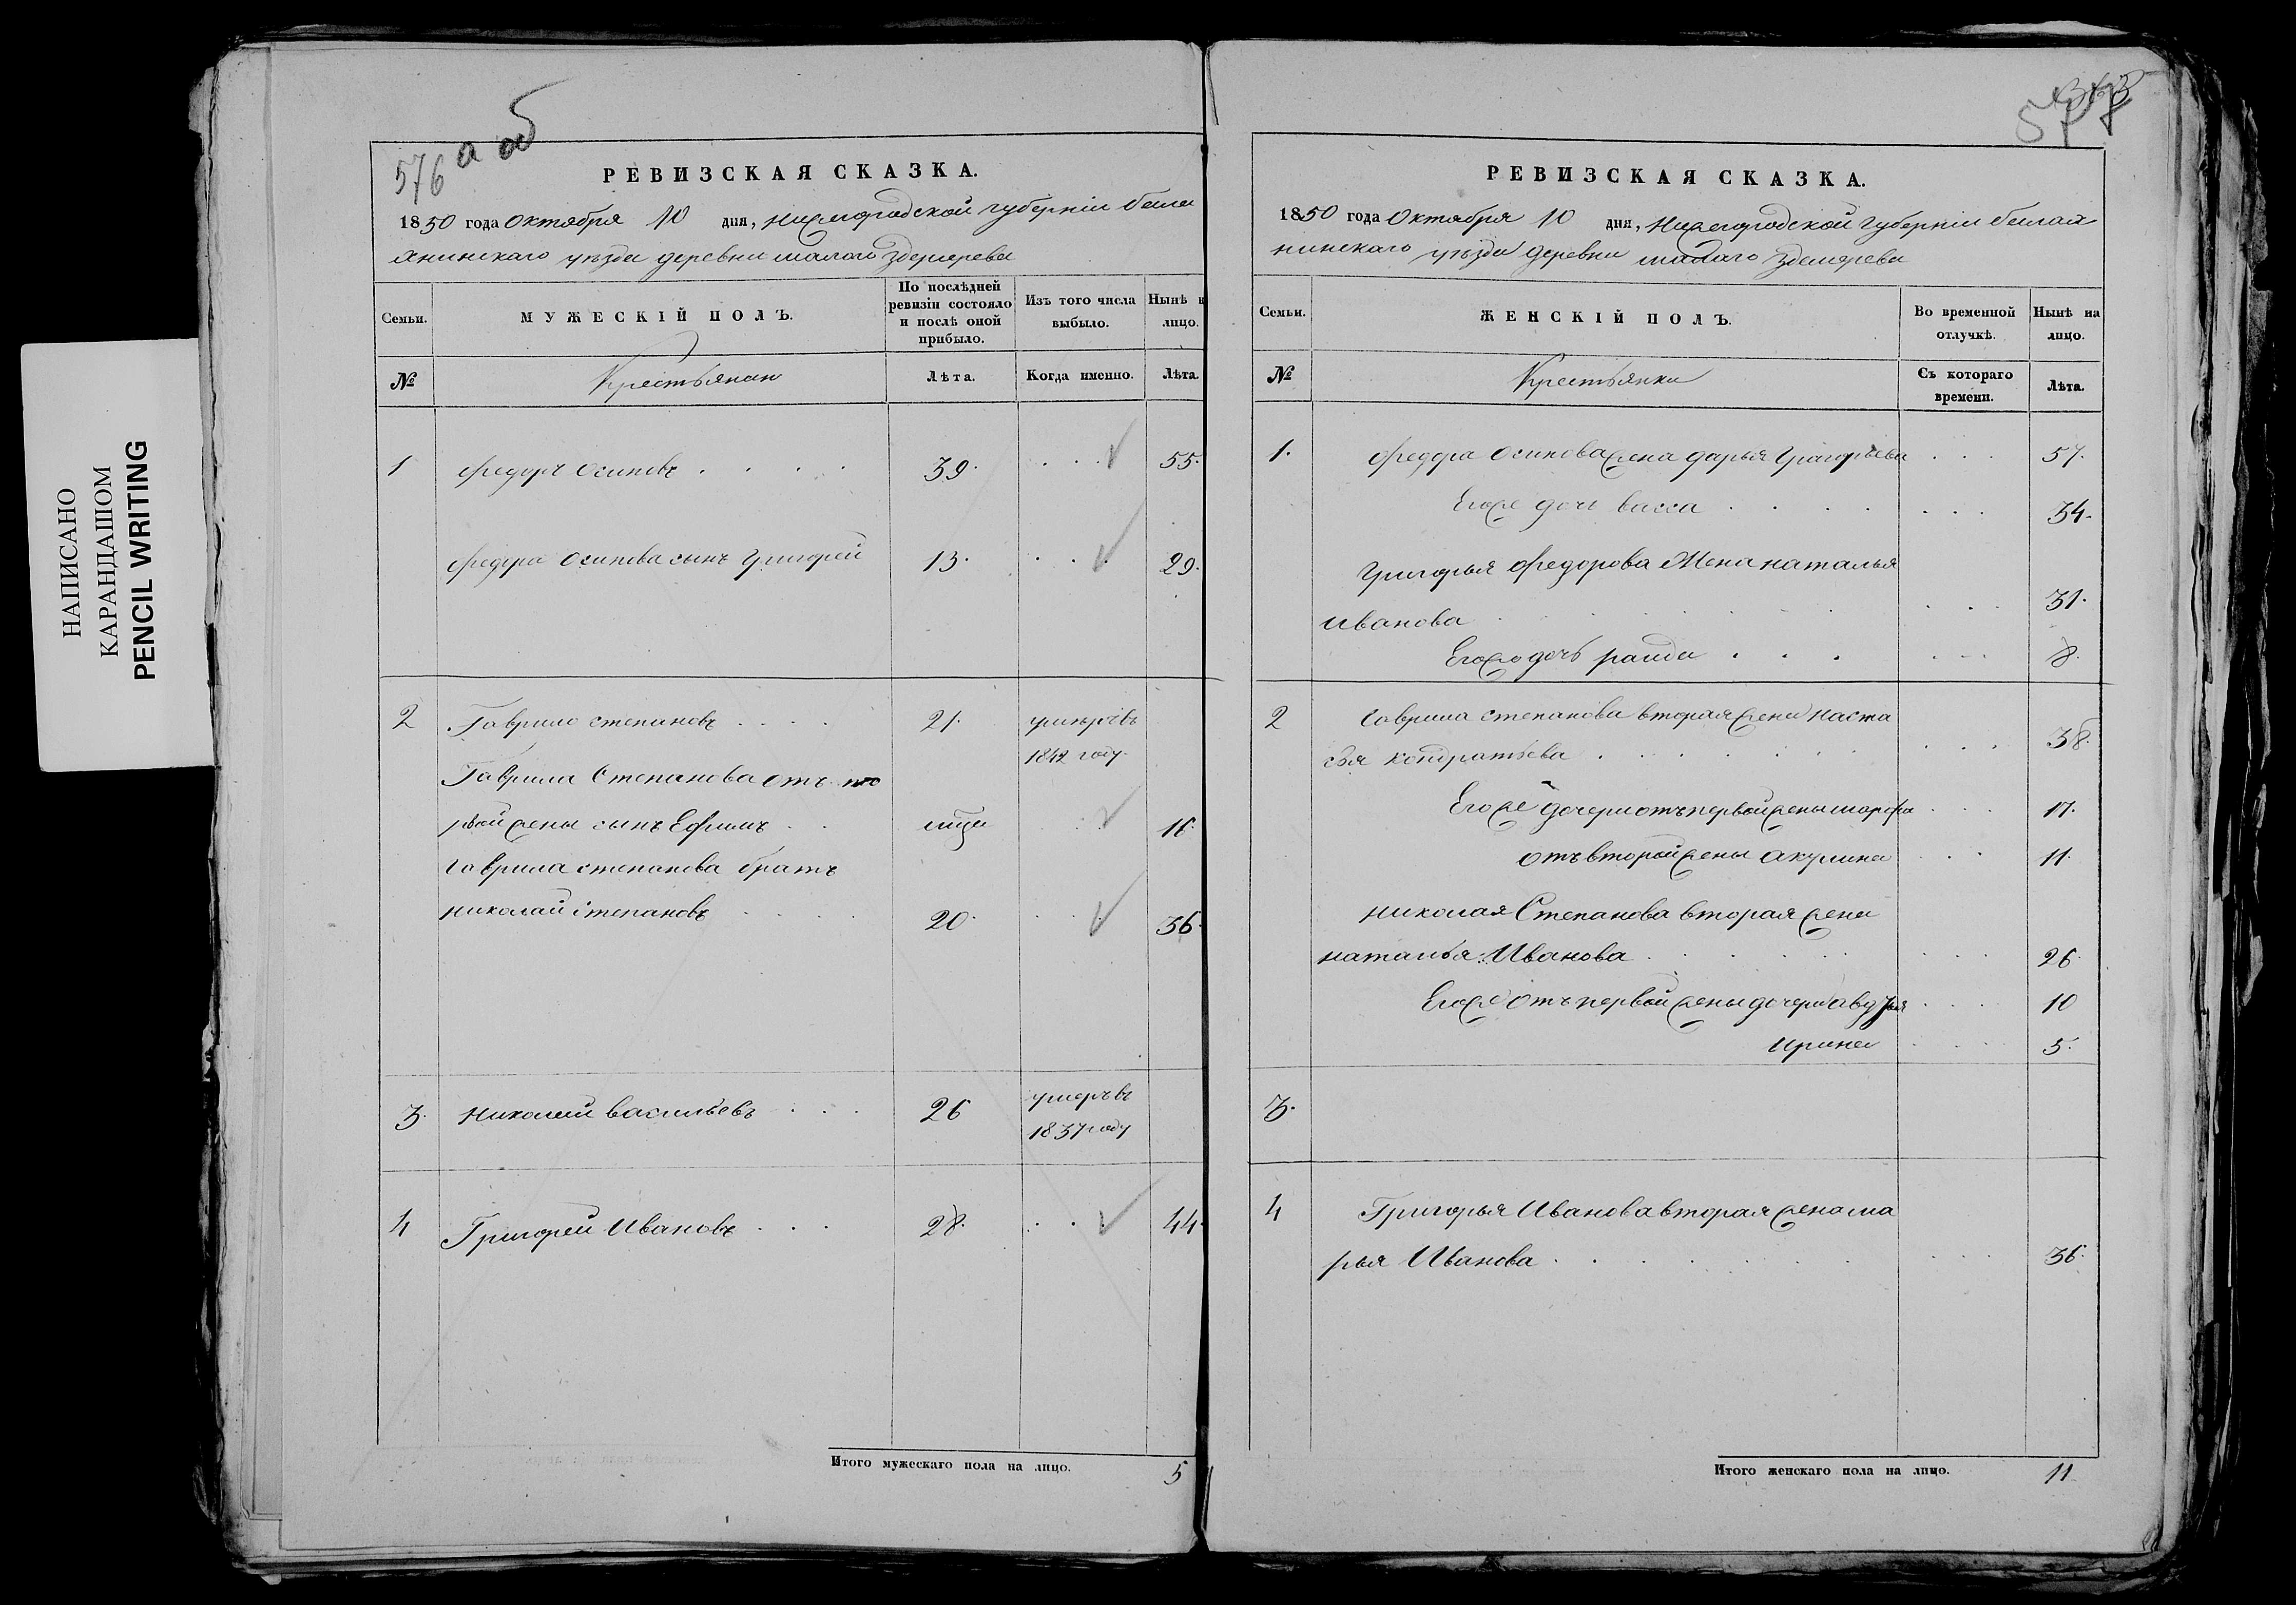 НАПИСАНО
КАРАНДАШОМ
PENCIL WRITING
576 а об
РЕВИЗСКАЯ СКАЗКА.
1850 года Октября 10 дня, нижегородской губерніи бала
хнинскаго уѣзда деревни малаго
Семьи. МУЖЕСКІЙ ПОЛЪ. По послѣдней ревизіи состояло и послѣ оной прибыло. Изъ того числа выбыло. Нынѣ н лицо.
№ Крестьянан Лѣта. Когда именно. Лѣта.
1 федоръ осиповъ . . . . 39. . . . 55.
федора осипова сынъ григорей 13. . . . 29.
2 Гаврило степановъ . . . . 21. умеръ въ
1842 году.
Гаврила Степанова отъ пе
рвой жены сынъ Ефимъ . . 16.
гаврила степанова братъ
николай степановъ . . . . 20. . . . 36.
3. николай васильевъ . . . 26 умеръ въ
1837 году
4 Григорей Ивановъ . . . 28. . . . 44.
Итого мужескаго пола на лицо. 5
РЕВИЗСКАЯ СКАЗКА.
1850 года Октября 10 дня, нижегородской губерніи балах
нинскаго уѣзда деревни малаго
Семьи. ЖЕНСКІЙ ПОЛЪ. Во временной отлучкѣ. Нынѣ на лицо.
№ Крестьянки Съ котораго времени. Лѣта.
1. федора осипова жена дарья григорьева . . . 57.
Егоже дочь васса . . . . . . . 34.
григорья федорова Жена наталья
иванова . . . . . . . . . 31.
Егоже дочь раида . . . . . . 8.
2 гаврила степанова вторая жена наста
сья кондратьева . . . . . . . . . 38.
Егоже дочери отъ первой жены марфа . . . 17.
отъ второй жены акулина . . . 11.
николая Степанова вторая жена
наталья Иванова . . . . . . . . 26.
Егоже отъ первой жены дочери авдотья . . . 10
ирина . . . . 5.
3.
4 Григорья Иванова вторая жена ма
рья Иванова . . . . . . . . . 36.
Итого женскаго пола на лицо. 11